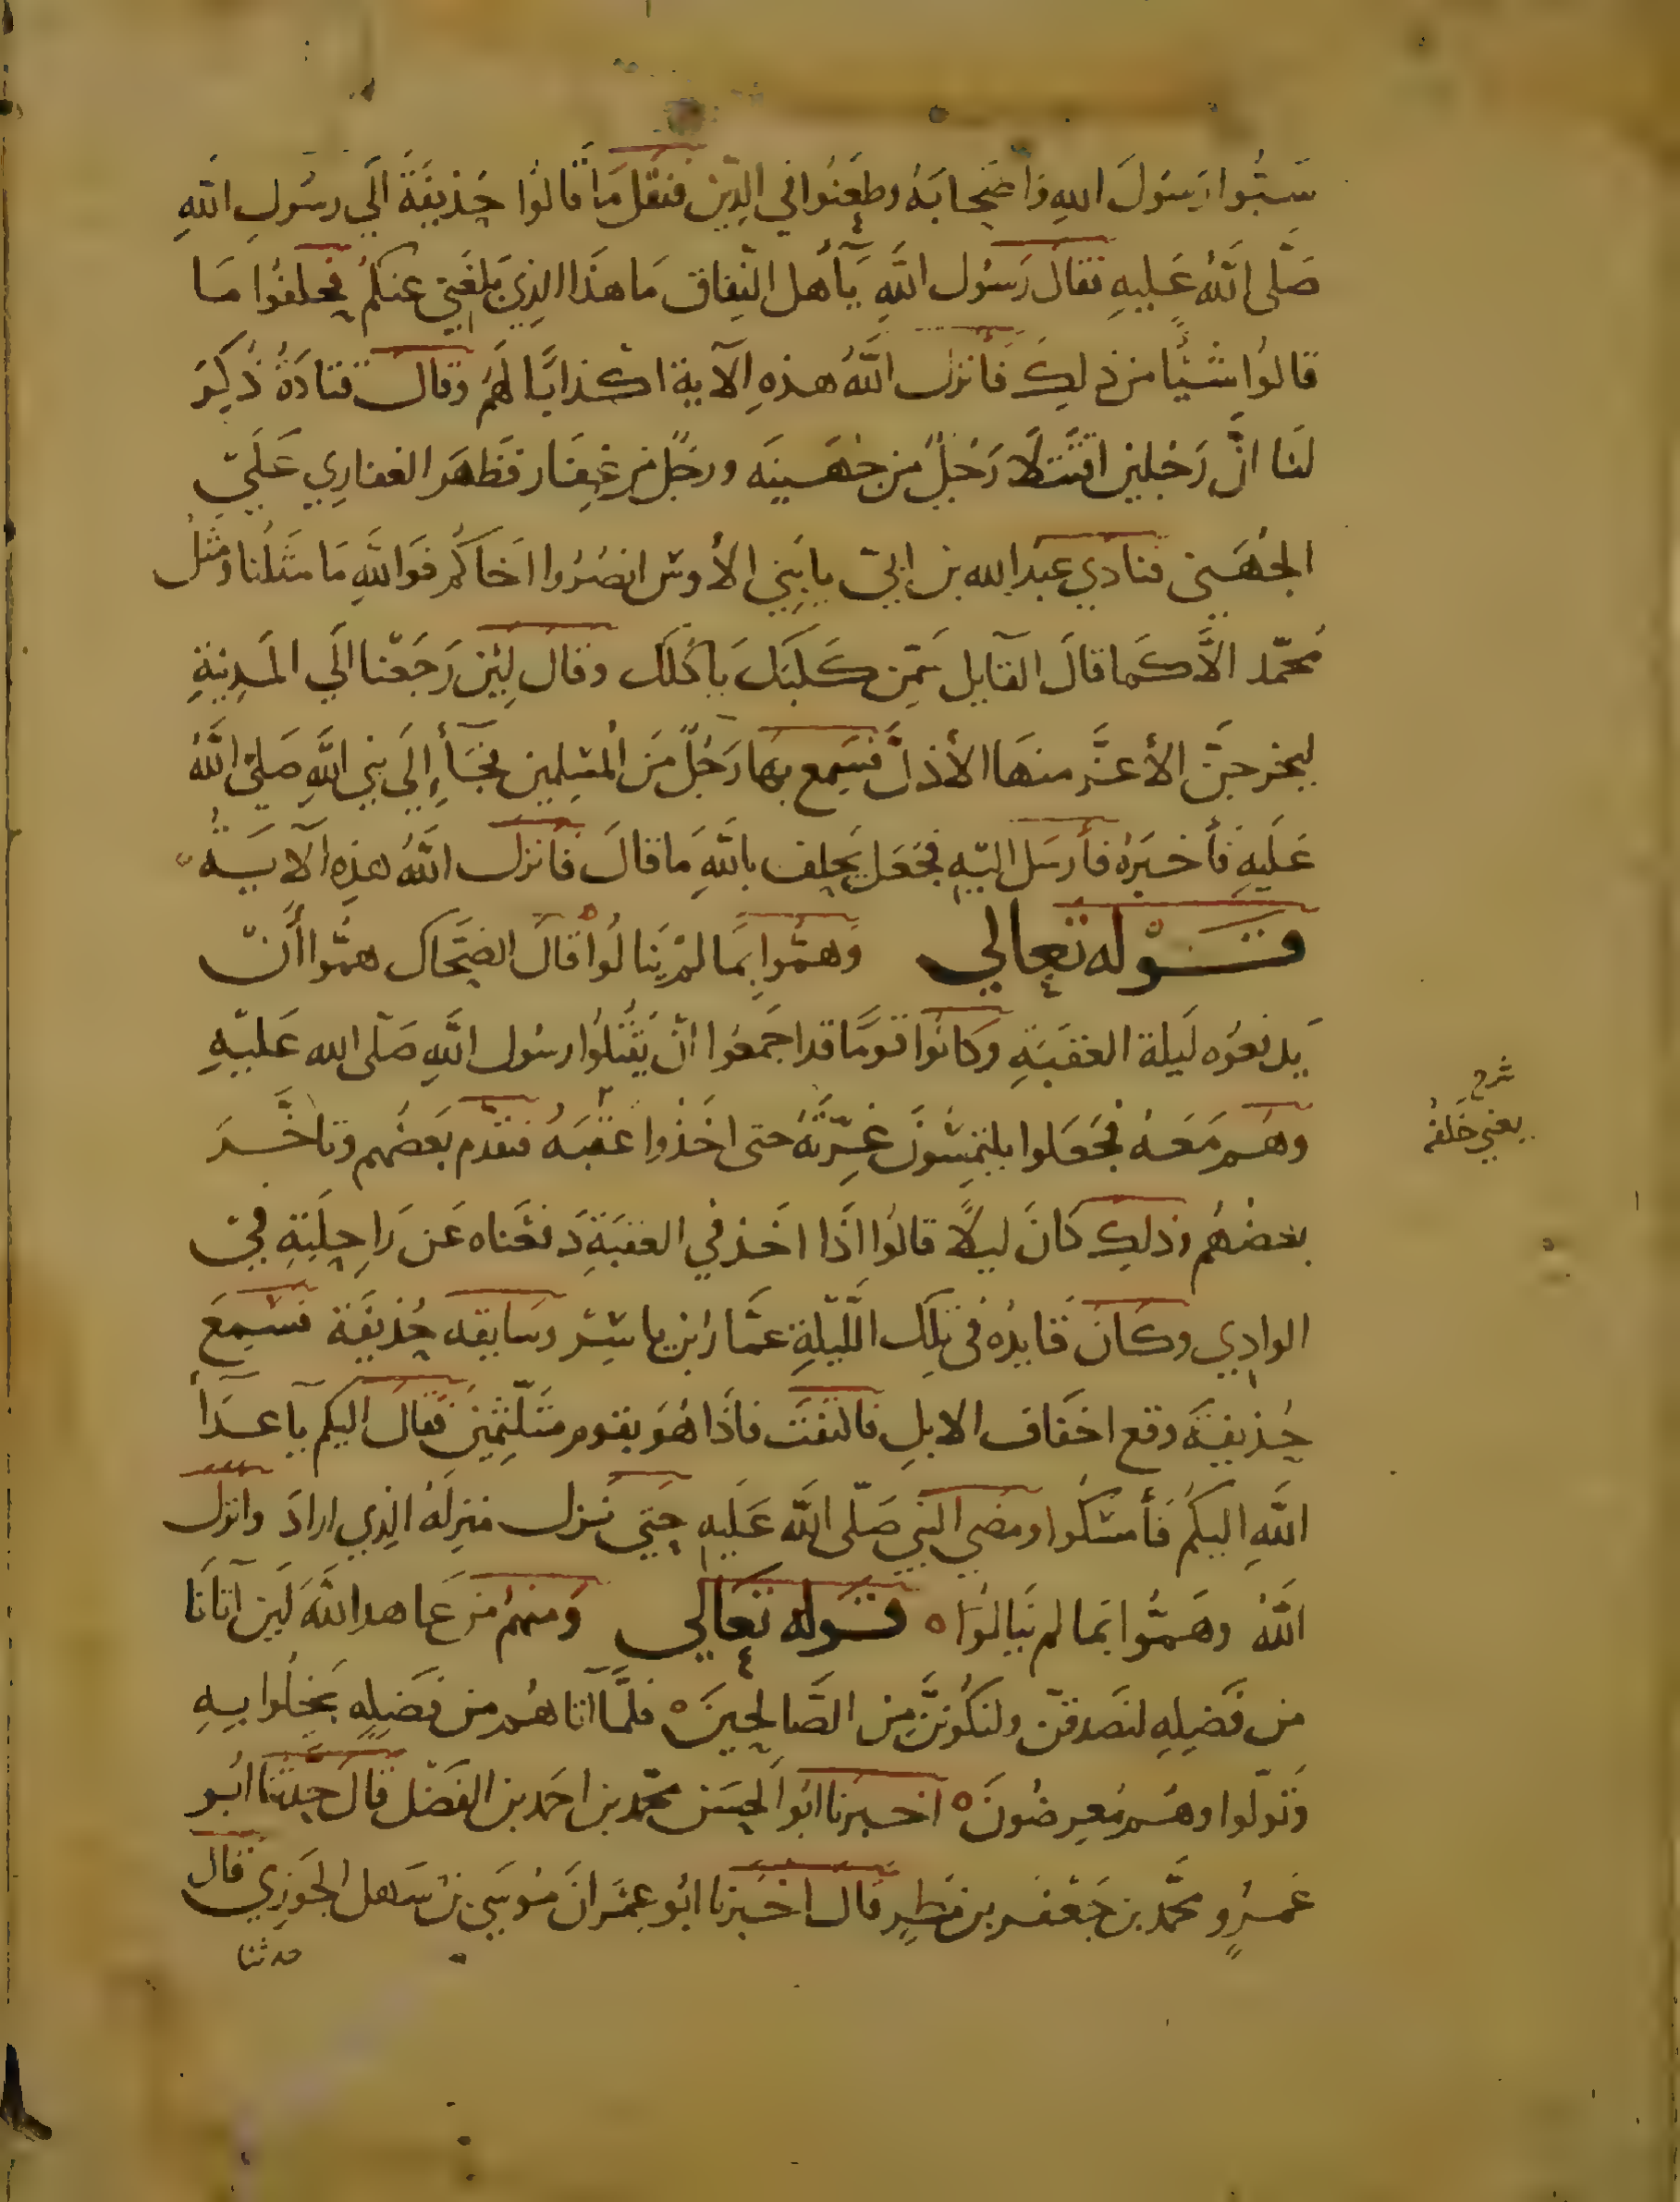 سَبُّوا رَسُولَ اللهِ وَأَصْحَابَهُ وطعَنُوا في الدِّين فنقل مَا قَالوُا حُذيفَةَ الَي رسُولِ اللهِ
صَلَّى اللَّهُ عَليهِ فقالَ رَسُول اللَّهِ يَآ أَهل النِّفاق مَا هَذَا الذِي بَلغَني عنكمُ فحلفوُا مَا
قالوُا شيْئًا من ذلِكَ فأنزل اللَّهُ هذهِ الآية اكذابًا لهَمُ وقالَ قتادَةُ ذُكِرَ
لنَا انَّ رَجُلين اقتَتَلَا رَجُلٌ من جُهَينَه ورجُلٌ من غِفَار فظَهَر الغفارِي عَلَيَ
الجُهَني فنادَي عبَد الله بن ابيّ يا بَنِي الأوس انصُرُوا اخَاكمُ فوَاللَّهِ مَا مثَلُنا ومَثلُ
مُحمَّد الاَّ كمَا قالَ القآيل سَمِّن كَلبَكَ يَاكُلكَ وقال لئِن رَجَعْنا الَي المَدينَةِ
ليخرجَنَّ الأعَزُّ منهَا الأذلَّ فسَمِع بهَا رَجُلٌ مَن المُسْلِمين فجَآءَ إِلَي نبي اللَّهِ صَلىّ اللَّهُ
عَلَيهِ فَأخبَرهُ فأرسَل اليَهِ فجَعَل يَحلِف باللَّهِ مَا قالَ فأنزلَ اللَّهُ هذِهِ الآيَةَ
قَوْله تعالي وَهمُّوا بِمَا لمْ يَنَالُوا قالَ الضحَّاك همُّوا أَنْ
يَدفعُوه لَيلة العَقبَةِ وَكانوُا قومًا قد اجمَعوُا انْ يَقْتلوُا رسُول اللَّهِ صَلّى الله عَليهِ
وهُم مَعَهُ فجَعَلوا يلتمِسُونَ غِرَّتَهُ حتى اخَذوا عقبَهُ فتقدم بعَضُهم وتاخَّرَ
شرح
يعني خَلفهُ
بعَضُهُم وذلكِ كانَ ليلًا قالوُا اذَا اخَذ في العقبَةِ دَفعْناه عَن رَاحِلَتِهِ فيَ
الوادِي وكانَ قَايدُه في تِلكَ اللَّيلةِ عمَّار ابن ياسِرْ وسَايقه حُذيفَة فسَمِعَ
حُذيفَةَ وقع اخفَاف الابلِ فالتفتَ فاذَا هُوَ بقوم متَلثِّمينَ فقالَ اليكم يآ اعدَآ
اللَّهِ اليكمُ فَأمْسَكُوا ومضي النبي صَلّى اللَّه عَلَيهِ حَتي نزل منزِلَهُ الذِي ارادَ وانزل
اللَّهُ وهَمُّوا بمَا لم يَنالوُا ه قوله تعَالي وَمنهمُ مَن عَاهد اللَّهَ لَين آتانَا
من فَضلِهِ لنصَدقَنّ ولنكُونَنَّ مِن الصَّالحِينَ ه فلَمَّا آتاهُم من فضَلِهِ بَخِلوُا بِهِ
وَتوَلّوا وهُم مُعِرضُونَ ه اخبَرنا ابوُا الحَسَن محمَّد بن احمَد بن الفَضْل قال حَدَّثنا ابُو
عَمرٍو محَمَّد بن جَعْفر بن مَطرٍ قال اخبَرنا ابُو عِمَرانَ مُوسَي بن سَهل الجَوني قَال
حدثنا